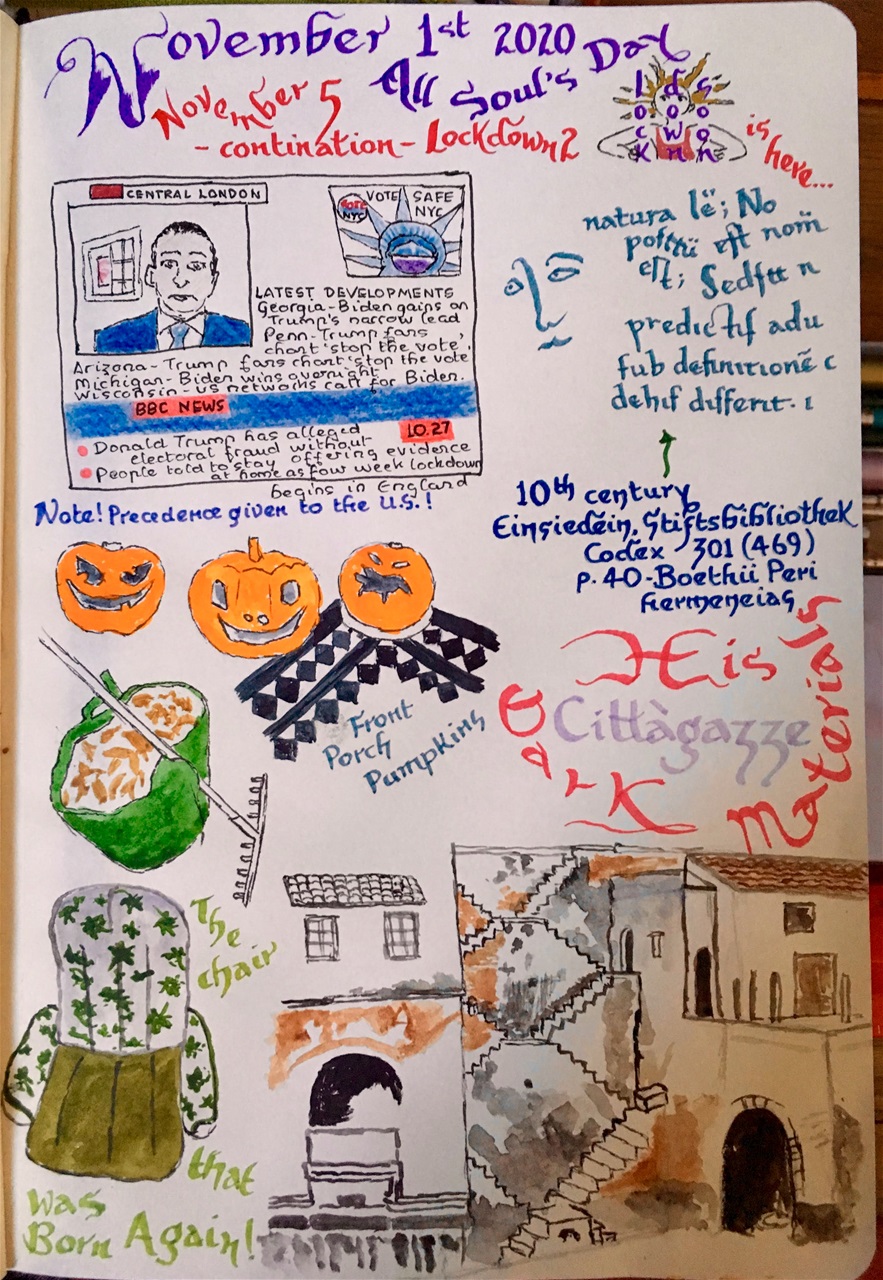 November 1st 2020
All Soul's Day
November 5
- contination - Lockdown2
l d s
o o o
c w o
k n n
is here...
CENTRAL LONDON
VOTE SAFE
NYC
VOTE
NYC
LATEST DEVELOPMENTS
Georgia-Biden gains on
Trump's narrow lead
Penn-Trump fans
chart 'stop the vote'.
Arizona- Trump fans chart 'stop the vote
Michigan-Biden wins overnight
Wisconsin-US networks call for Biden.
BBC NEWS
10.27
Donald Trump has alleged
electoral fraud without
offering evidence
People told to stay
at home as four week lockdown
begins in England
Note! Precedence given to the U.S.!
natura lë; No
est; Sedftt n
predictif adu
fub definitionē c
dehif differit. i
10th century
Einsiedein, Stiftsbibliothek
Codex 301 (469)
p. 40-Boethii Peri
hermeneias
Front
Porch
Pumpkins
His
Dark
Materials
Cittàgazze
The
chair
that
was
Born Again!